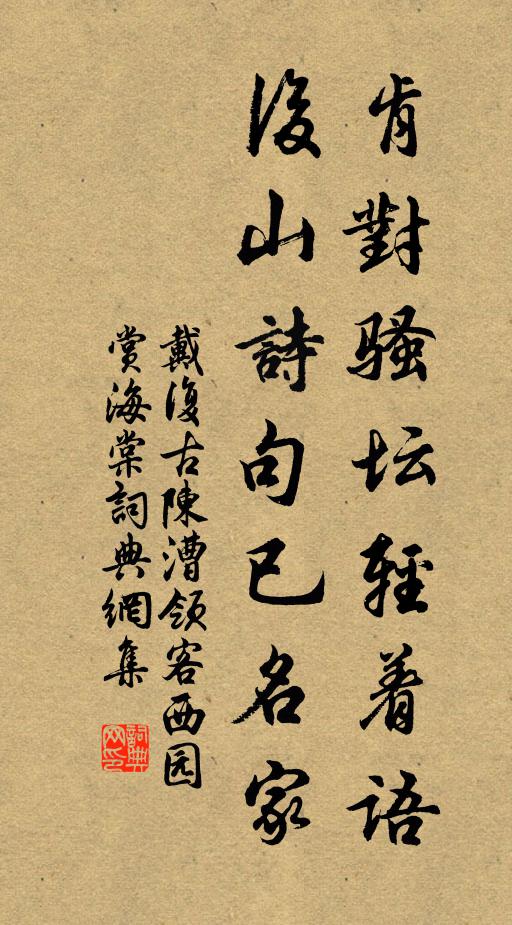 肯對骚坛輕着語
後山詩句已名家
戴復古陳漕領客西园
賞海棠詞典網集
詞典网印